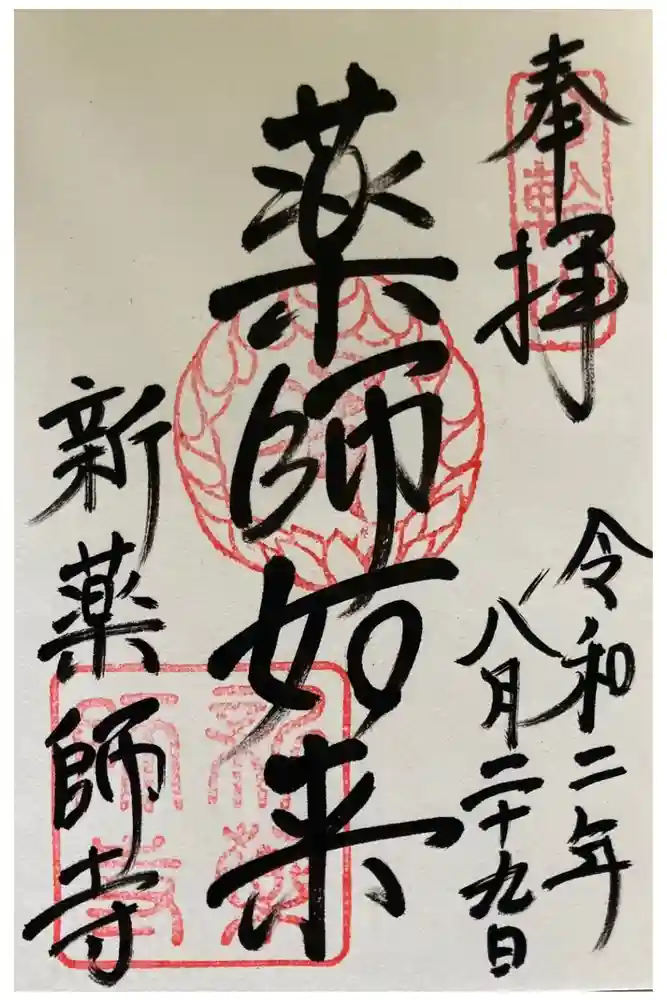 奉拝
令和二年
八月二十九日
薬師如来
新薬師寺